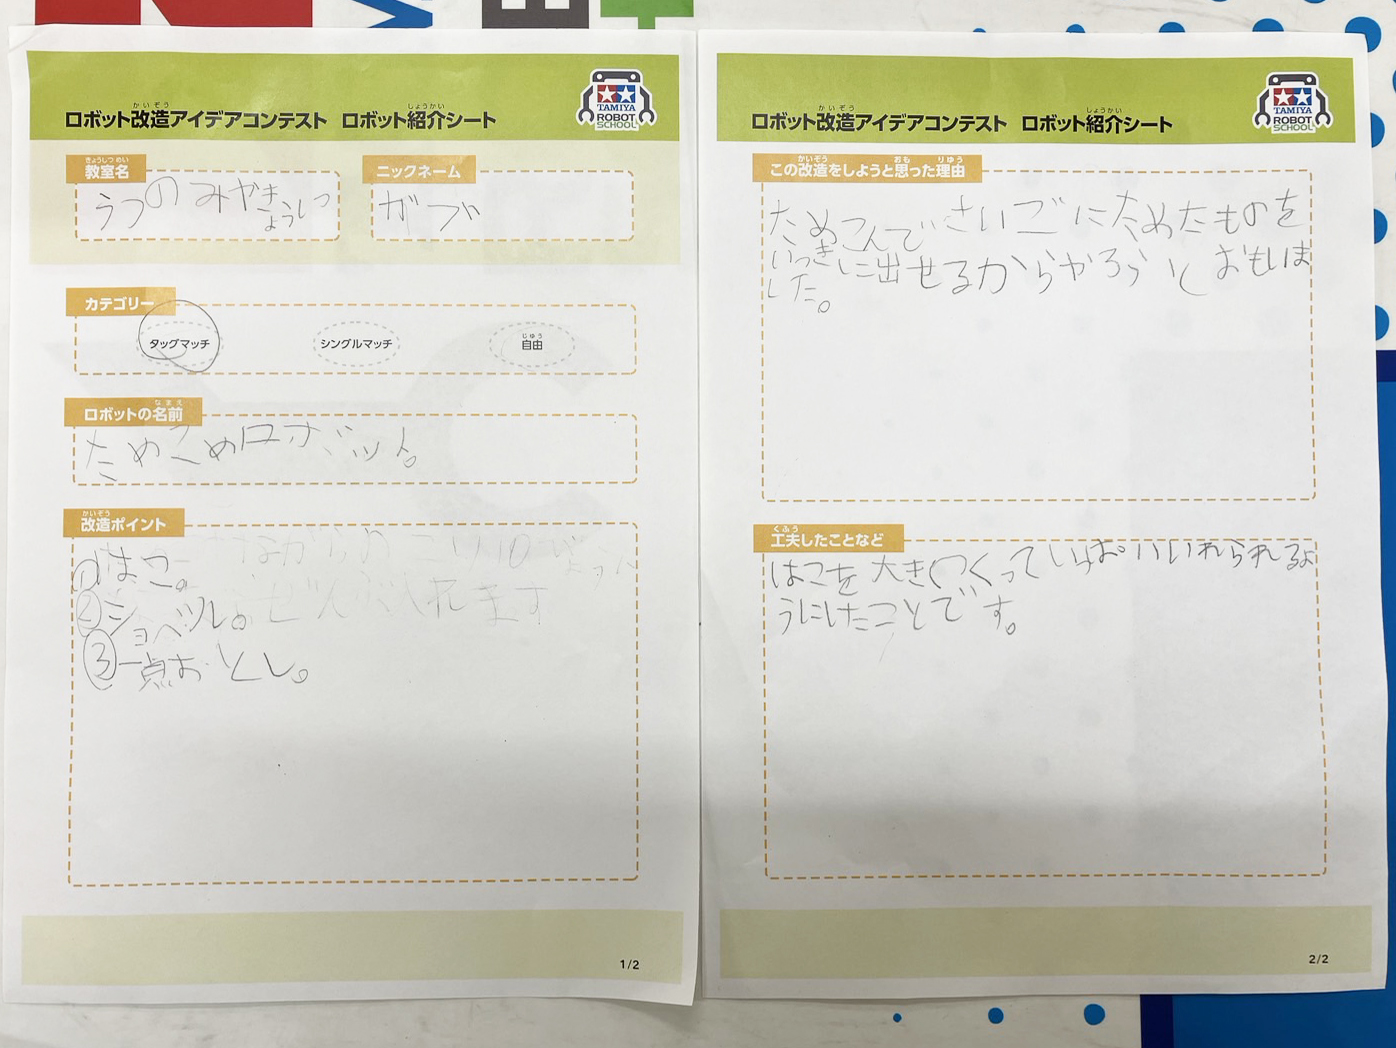 ロボット改造アイデアコンテスト ロボット紹介シート
かいぞう
しょうかい
TAMIYA
ROBOT
SCHOOL
教室名
きょうしつ めい
うつのみやきょうしつ
ニックネーム
ガブ
カテゴリー
タッグマッチ
シングルマッチ
自由
じゆう
ロボットの名前
なまえ
ためこめロボット。
改造ポイント
かいぞう
①はこ。
②ショベル。
ぜんぶ入れます
③一点おとし。
1/2
ロボット改造アイデアコンテスト ロボット紹介シート
かいぞう
しょうかい
TAMIYA
ROBOT
SCHOOL
この改造をしようと思った理由
かいぞう
おも
りゆう
ためこんでさいごにためたものを
いっきに出せるからやろうとおもいま
した。
工夫したことなど
くふう
はこを大きくつくっていっぱいいれられるよ
うにしたことです。
2/2